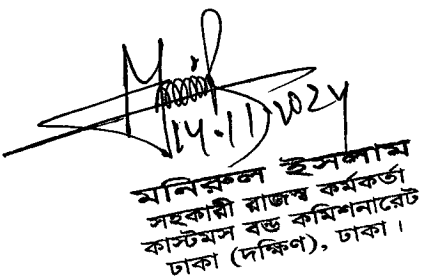 14.11.2024
মনিরুল ইসলাম
সহকারী রাজস্ব কর্মকর্তা
কাস্টমস বন্ড কমিশনারেট
ঢাকা (দক্ষিণ), ঢাকা।